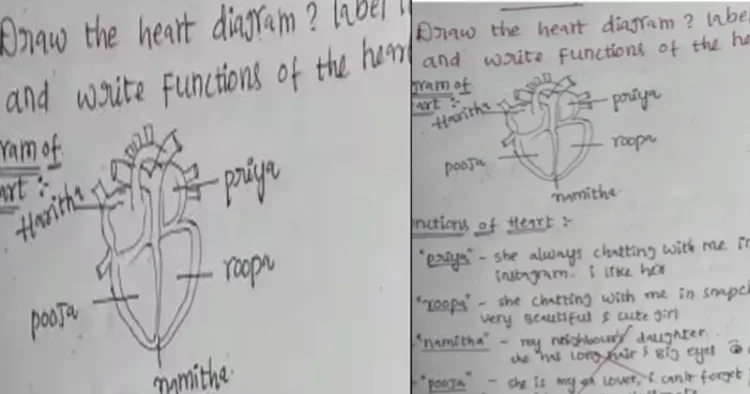 Draw the heart diagram? label
and write Functions of the hear
ram of
art :-
Haritha
priya
roopa
pooja
namitha
Draw the heart diagram? labe
and write Functions of the he
gram of
art :-
Haritha
priya
roopa
pooja
namitha
nctions of Heart :-
"priya" - she always chatting with me in
instagram. i like her
"roopa" - she chatting with me in snapch
very Beautiful & cute girl
"namitha" - my neighbour's daughter.
she has long hair & Big eyes
"pooja" - she is my ex lover, i can't forget